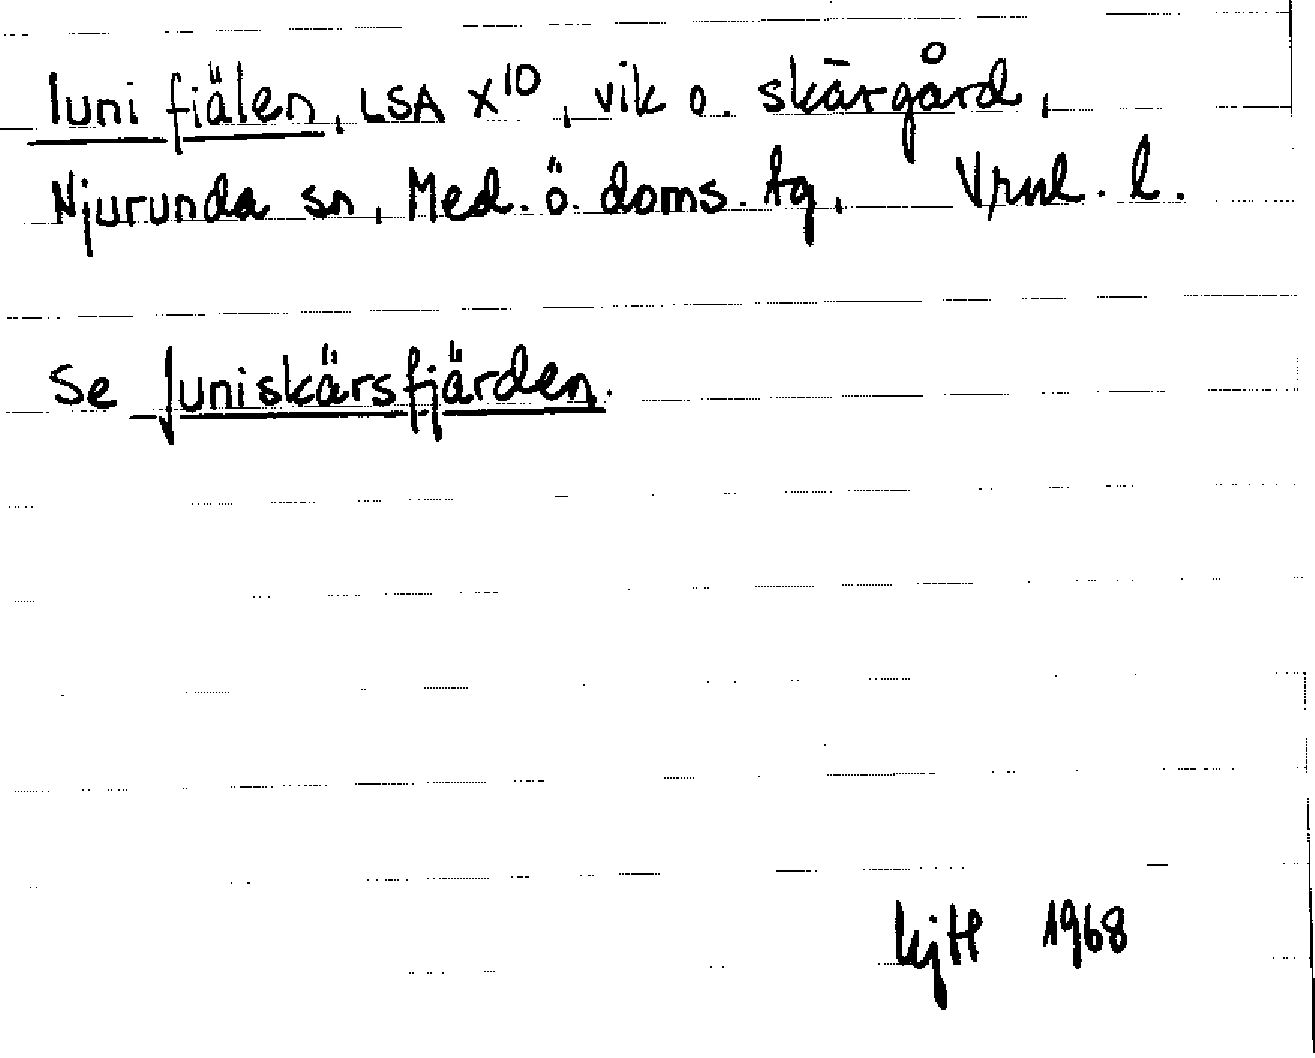 Iuni fiälen, LSA X10, vik o. skärgård,
Njurunda sn, Med. ö. doms. tg, Vrnl. l.
Se Juniskärsfjärden.
kjH 1968